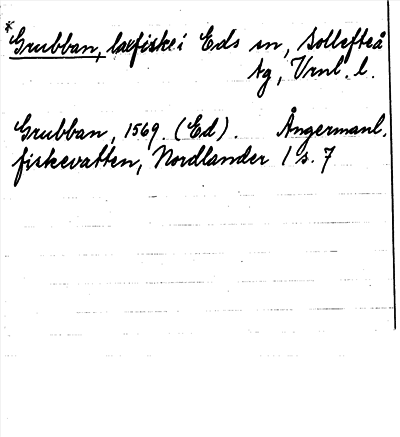 *Grubban, laxfiske i Eds sn, Sollefteå
tg, Vrnl. l.
Grubban, 1569. (Ed). Ångermanl.
fiskevatten, Nordlander 1 s. 7